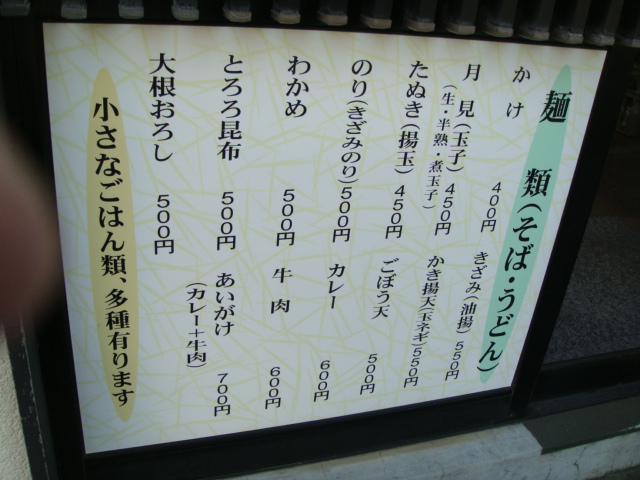 麺類(そば・うどん)
かけ 400円
月見(玉子) 450円
(生・半熟・煮玉子)
たぬき(揚玉) 450円
のり(きざみのり) 500円
わかめ 500円
とろろ昆布 500円
大根おろし 500円
きざみ(油揚) 550円
かき揚天(玉ネギ) 550円
ごぼう天 500円
カレー 600円
牛肉 600円
あいがけ 700円
(カレー+牛肉)
小さなごはん類、多種有ります